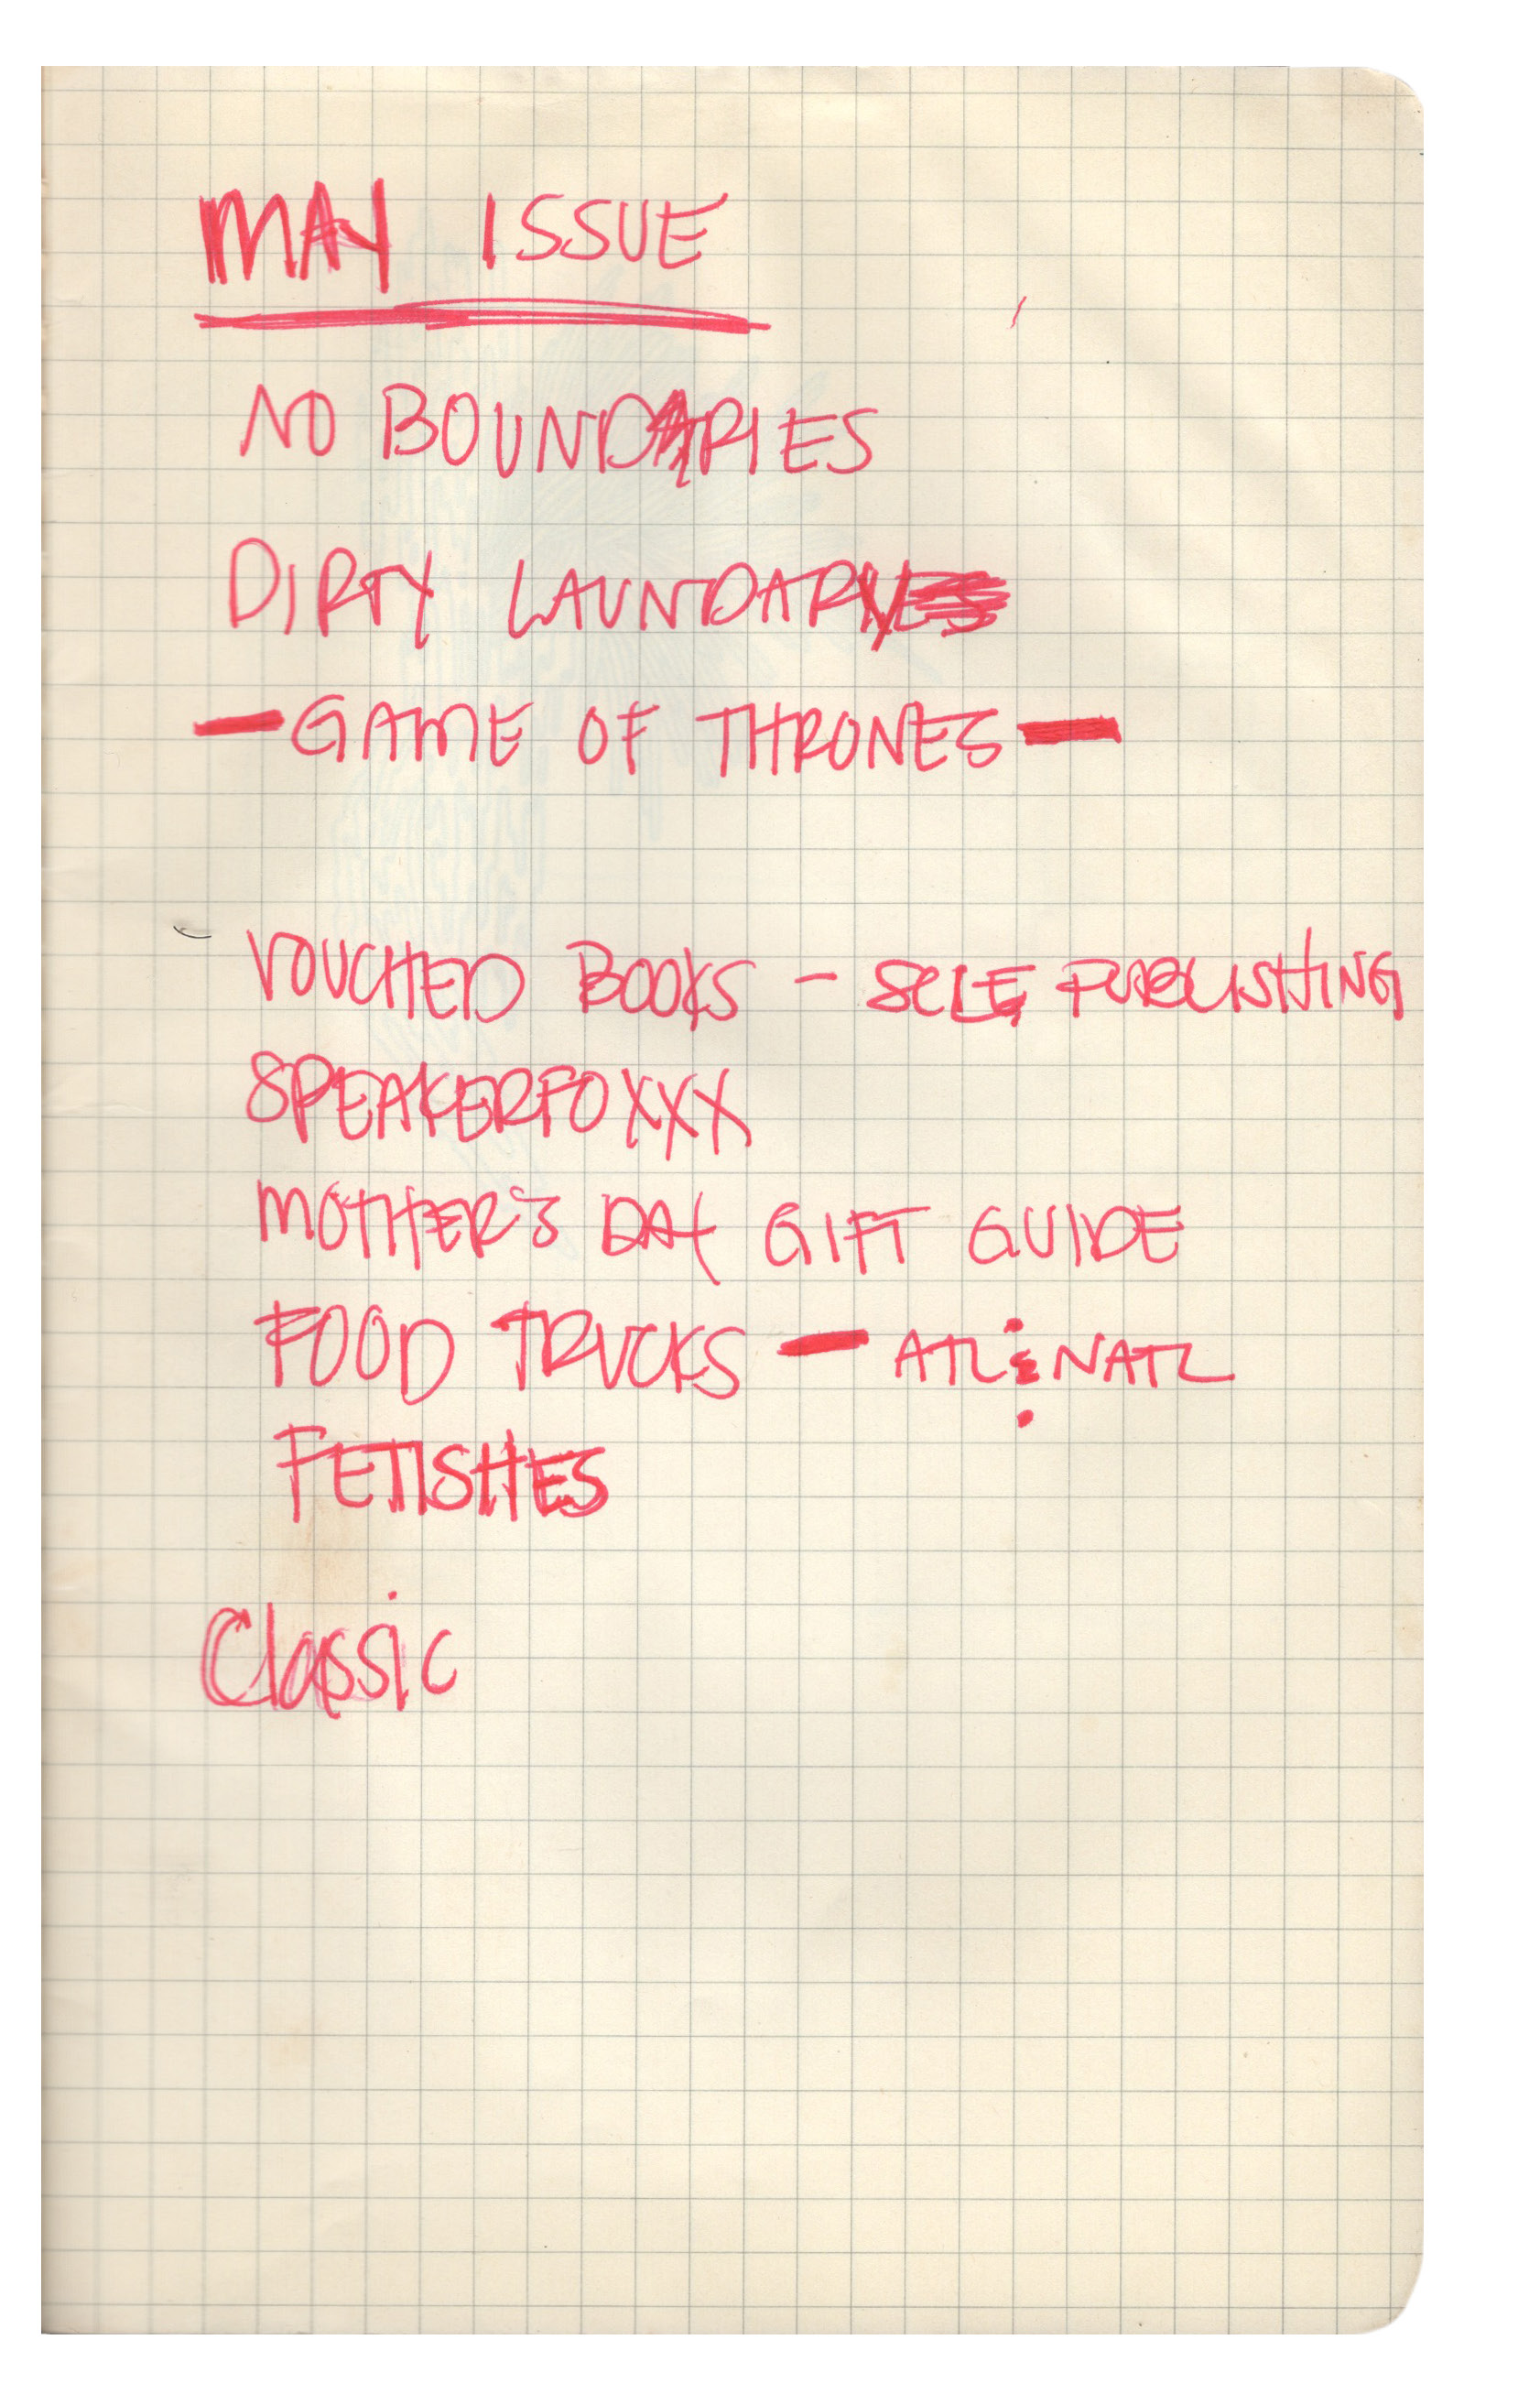 MAY ISSUE
NO BOUNDARIES
DIRTY LAUNDARY
- GAME OF THRONES -
VOUCHED BOOKS - SELF PUBLISHING
SPEAKERFOXXX
MOTHER'S DAY GIFT GUIDE
FOOD TRUCKS - ATL & NATL
FETISHES
Classic